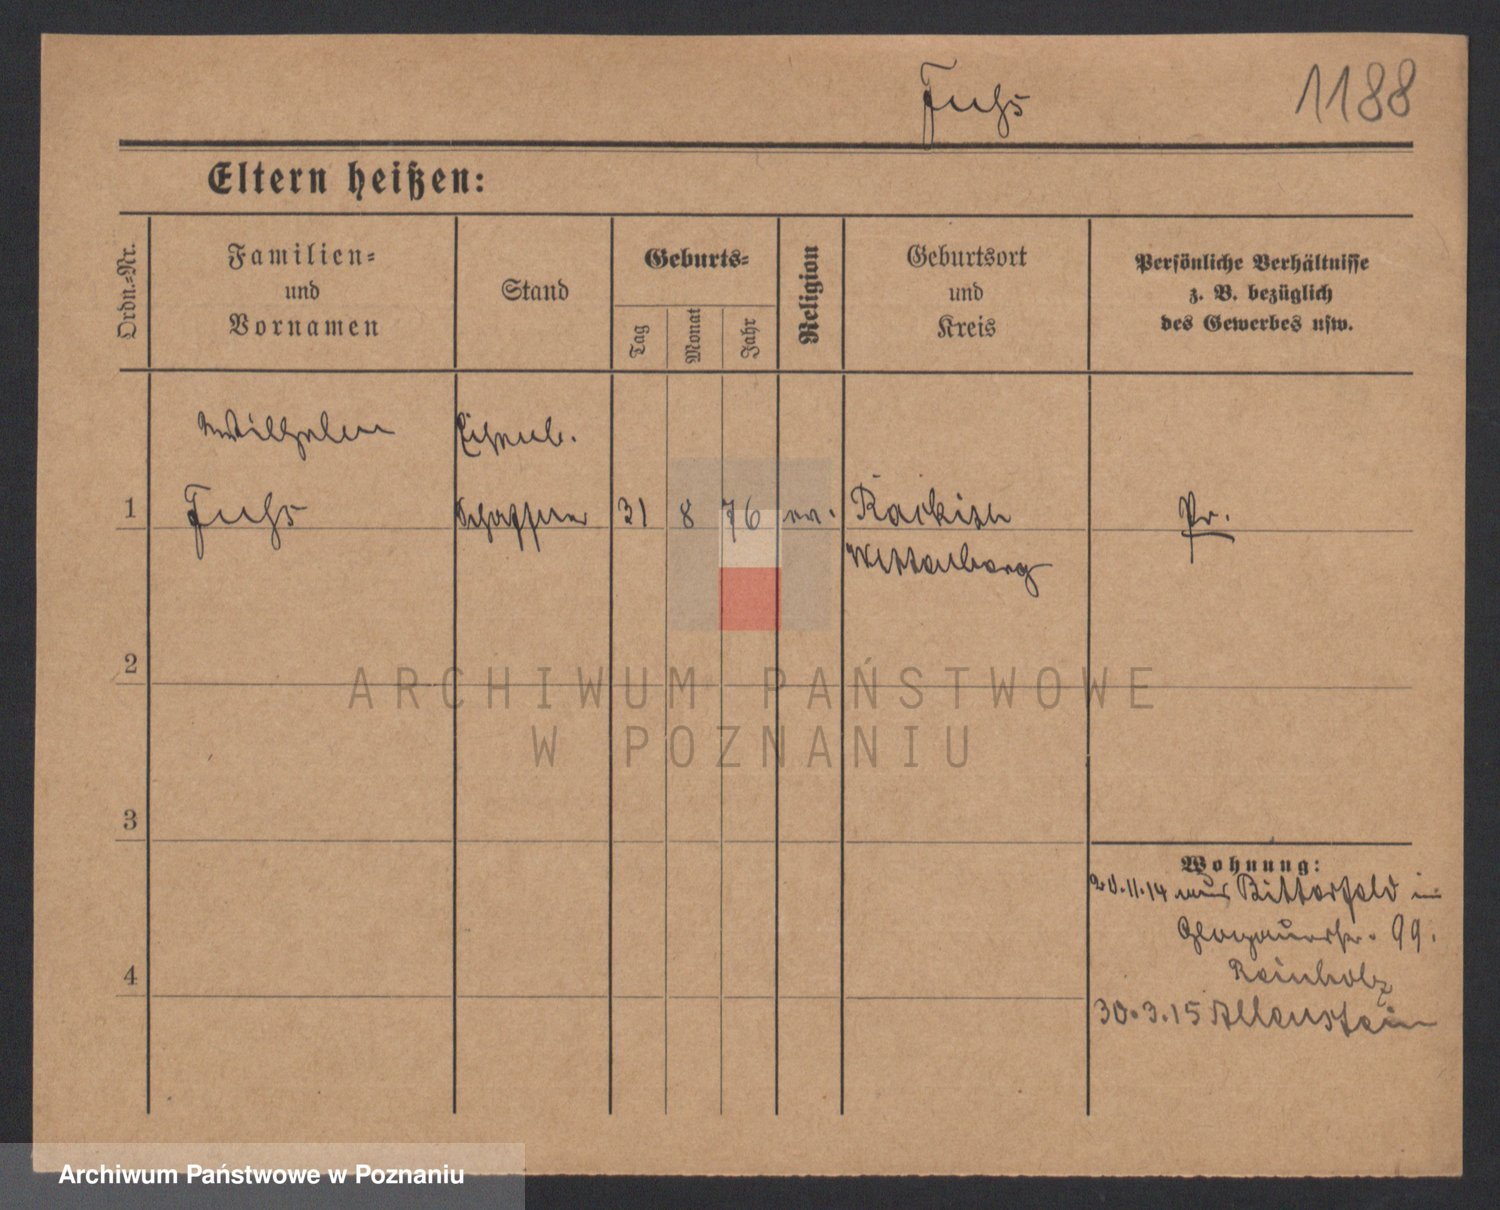 Fuchs
1188
Eltern heißen:
Ordn.-Nr.
Familien-
und
Vornamen
Stand
Geburts-
Tag
Monat
Jahr
Religion
Geburtsort
und
Kreis
Persönliche Verhältnisse
z. B. bezüglich
des Gewerbes usw.
Wilhelm
Eisenb.
1
Fuchs
Schaffner
31
8
76
ev.
Pr.
Wittenberg
2
ARCHIWUM PAŃSTWOWE
W POZNANIU
3
Wohnung:
20.11.14 aus Bitterfeld in
Glogauerstr. 99.
Reinholz
4
30.3.15 Allenstein
Archiwum Państwowe w Poznaniu